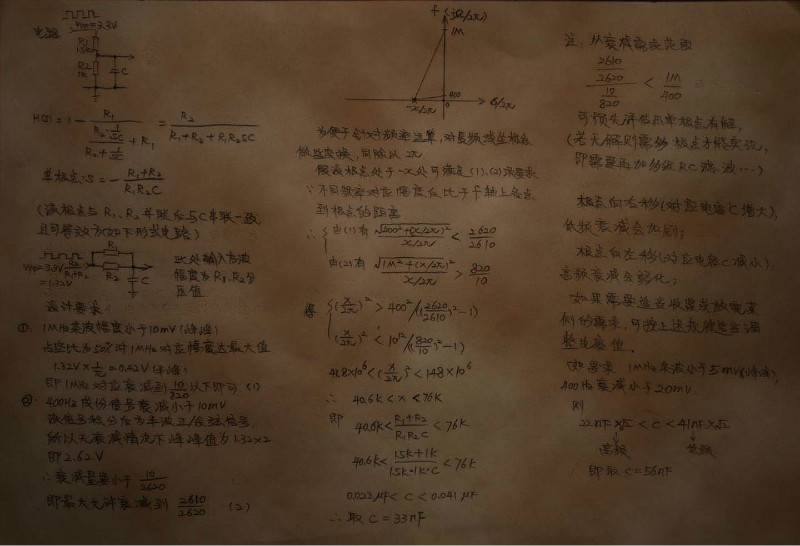 电路
Vpp=3.3V
R1
1.5K
R2
1K
C
H(s) = 1 - R1 / (R2·1/SC / (R2+1/SC) + R1) = R2 / (R1+R2+R1R2SC)
单极点: S = - (R1+R2) / (R1R2C)
(该极点与R1、R2并联后与C串联一致,
且可等效为如下形式电路)
R1
R2
C
=1.32V
此处输入方波
幅度为R1、R2分
压值
设计要求
①. 1MHz 幅度小于10mV (峰峰)
占空比为50%时1MHz对应幅度达最大值
(峰峰)
即1MHz对应衰减到 10/820 以下即可 (1)
②. 400Hz成份信号衰减小于10mV
所以无衰减情况下峰峰值为1.32×2
即2.62V
∴衰减量要小于 10/2620
即最大允许衰减到 2610/2620 (2)
f (jΩ/2π)
1M
400
0
-x/2π
σ/2π
为便于针对频率运算,对复频域坐标轴
做些变换,同除以2π
假设极点处于-x处可满足(1)、(2)式要求
∵不同频率对应幅度反比于f轴上各点
到极点的距离
∴ 由(1)有 √(400²+(x/2π)²) / (x/2π) < 2620/2610
由(2)有 √(1M²+(x/2π)²) / (x/2π) > 820/10
得 (x/2π)² > 400²/((2620/2610)²-1)
(x/2π)² < 10¹²/((820/10)²-1)
<(x/2π)²<148×10⁶
∴ 40.6K < x < 76K
即 40.6K < (R1+R2)/(R1R2C) < 76K
40.6K < (1.5K+1K)/(1.5K·1K·C) < 76K
0.022μF < C < 0.041μF
∴ 取 C = 33nF
注: 从衰减幅度范围
(2610/2620) / (10/820) < 1M/400
可预先评估用单极点有解,
(若无解则需多极点才能实现,
即需要再加多级RC滤波…)
极点向右移(对应电容C增大),
低频衰减会加剧;
极点向左移(对应电容C减小),
高频衰减会弱化;
如果需要适当
例的需求,可按上述规律适当调
整电容值.
(如要求 1MHz 小于5mV(峰峰),
400Hz衰减小于20mV.
则
22nF×√2 < C < 41nF×√2
高频
低频
即取 C=56nF